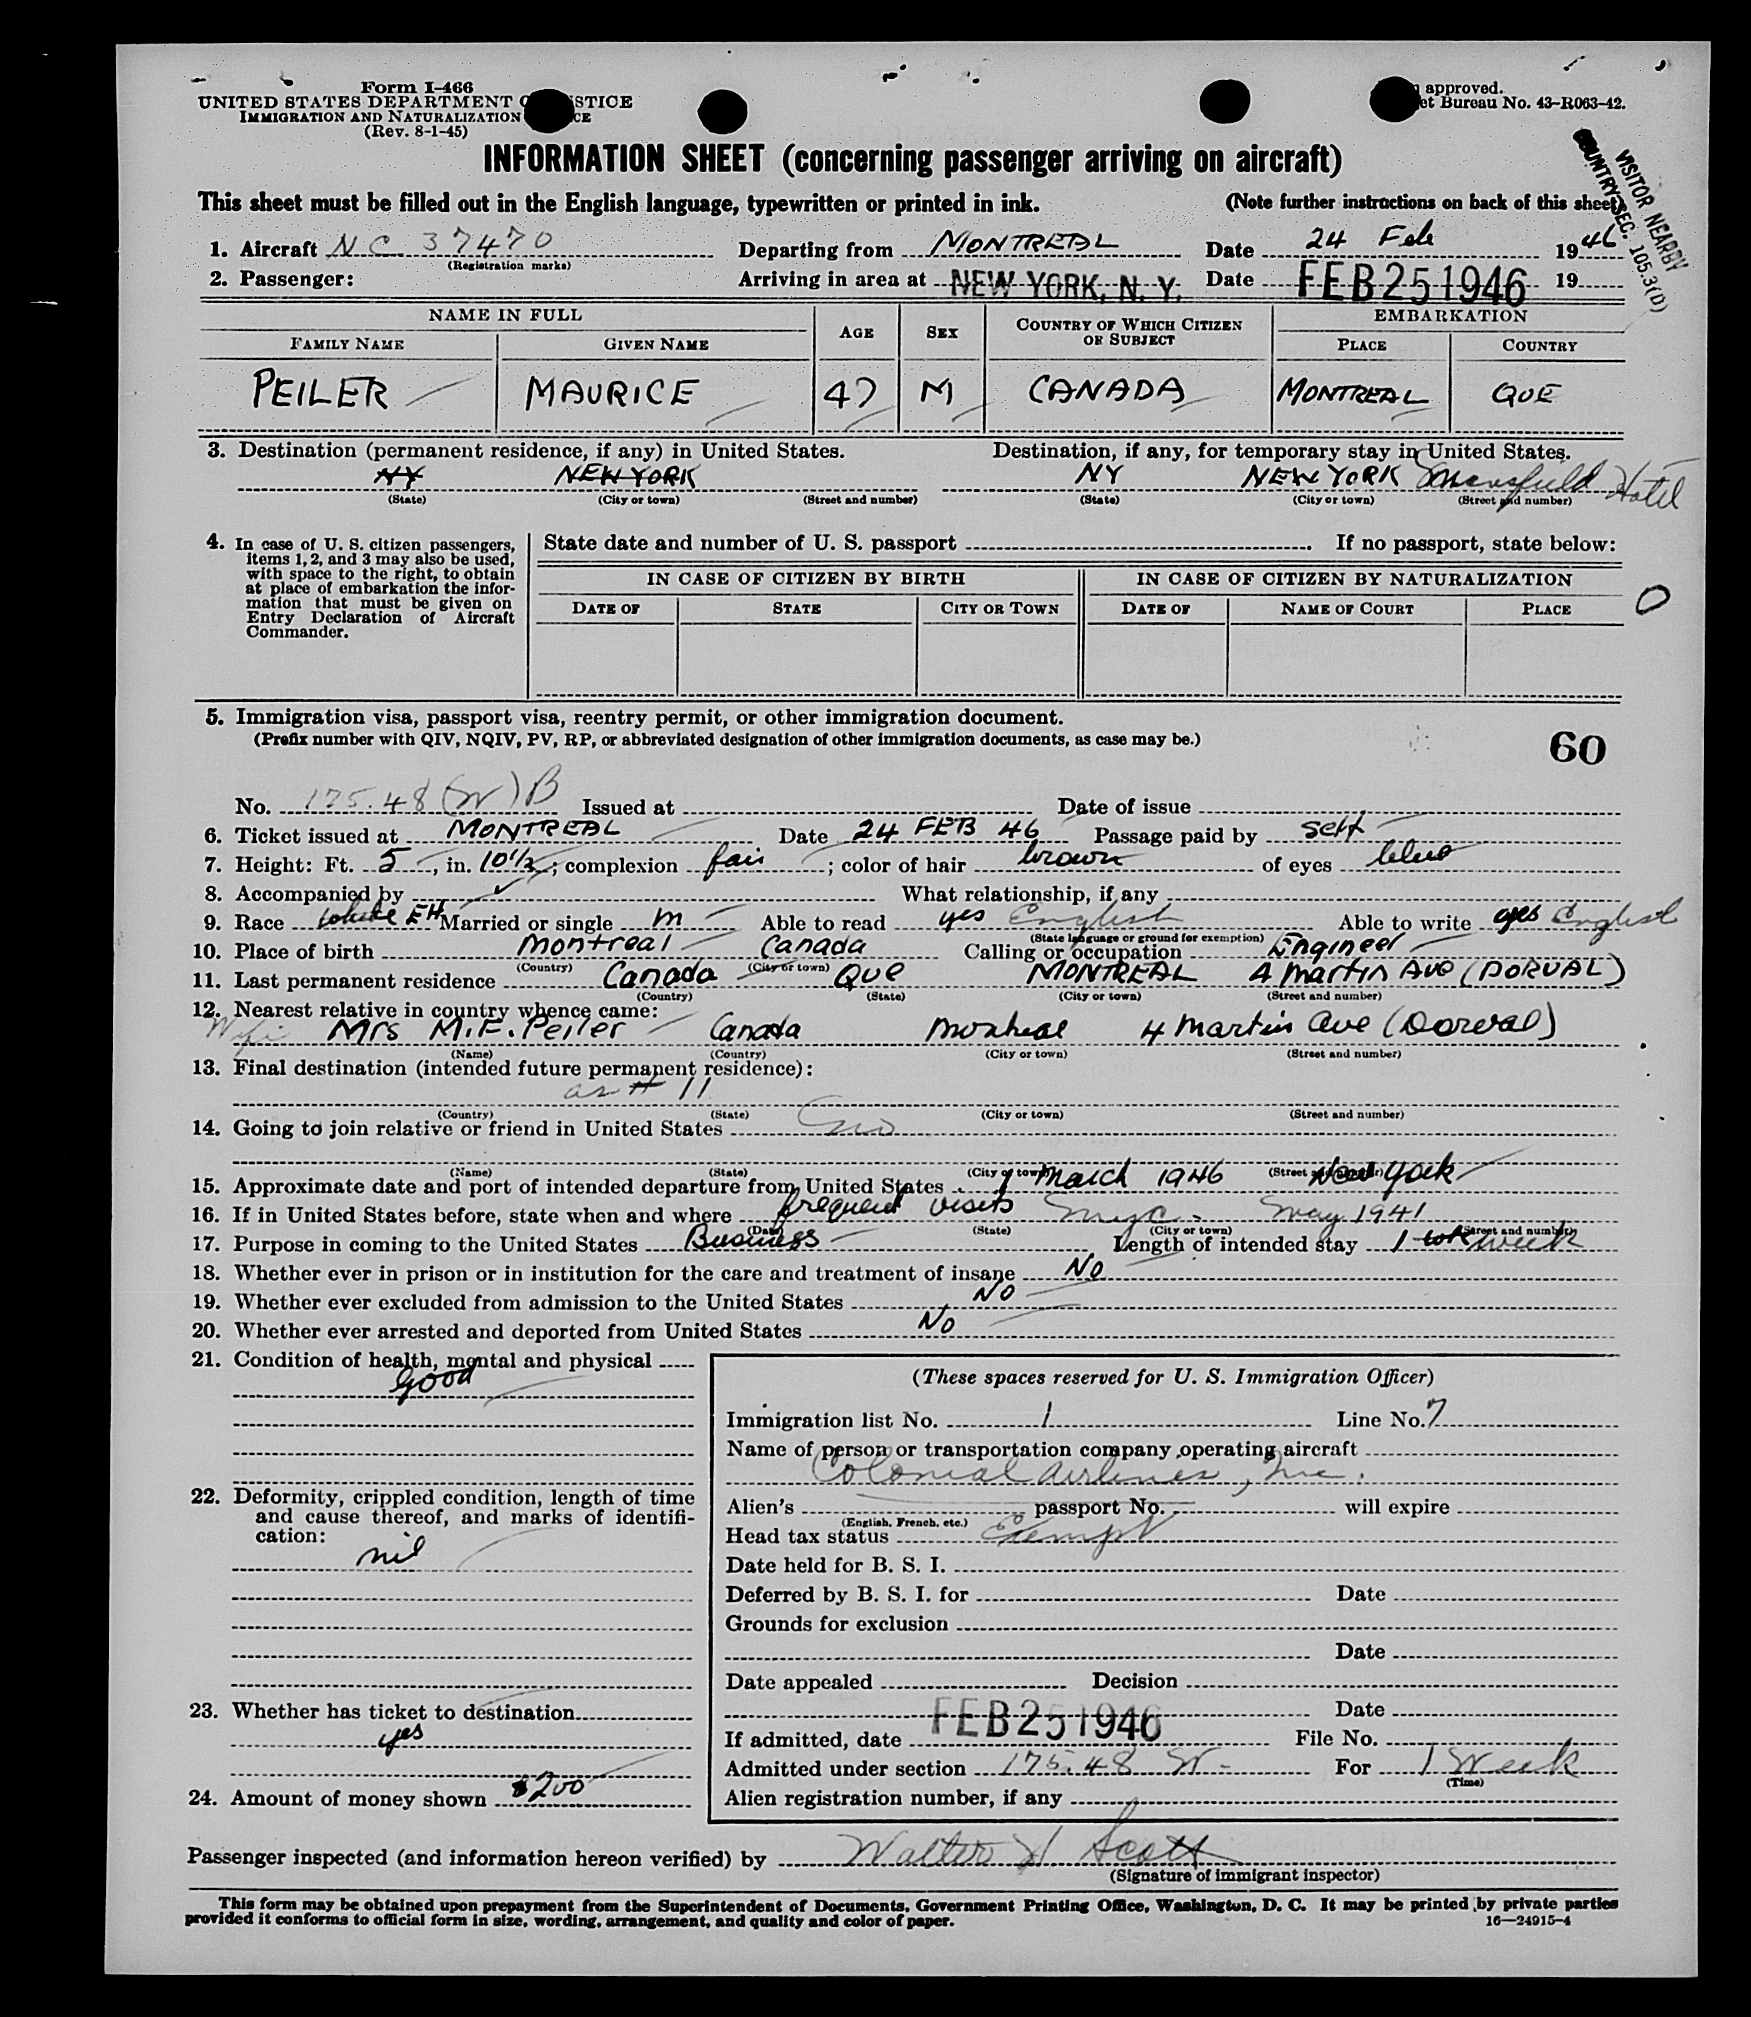 Form I-466
UNITED STATES DEPARTMENT STICE
IMMIGRATION AND NATURALIZATION CE
(Rev. 8-1-45)
approved.
et Bureau No. 43-R063-42.
INFORMATION SHEET (concerning passenger arriving on aircraft)
VISITOR NEARBY
COUNTRY SEC. 105.3(1)
This sheet must be filled out in the English language, typewritten or printed in ink.
(Note further instructions on back of this sheet)
1. Aircraft NC 37470 Departing from MONTREAL Date 24 Feb 1946
(Registration marks)
2. Passenger: Arriving in area at NEW YORK, N. Y. Date FEB 25 1946 19
NAME IN FULL AGE SEX COUNTRY OF WHICH CITIZEN OR SUBJECT EMBARKATION
FAMILY NAME GIVEN NAME PLACE COUNTRY
PEILER MAURICE 47 M CANADA MONTREAL QUE
3. Destination (permanent residence, if any) in United States. Destination, if any, for temporary stay in United States.
NY NEW YORK NY NEW YORK Mansfield Hotel
(State) (City or town) (Street and number) (State) (City or town) (Street and number)
4. In case of U. S. citizen passengers, items 1, 2, and 3 may also be used, with space to the right, to obtain at place of embarkation the information that must be given on Entry Declaration of Aircraft Commander.
State date and number of U. S. passport If no passport, state below:
IN CASE OF CITIZEN BY BIRTH IN CASE OF CITIZEN BY NATURALIZATION
DATE OF STATE CITY OR TOWN DATE OF NAME OF COURT PLACE
0
5. Immigration visa, passport visa, reentry permit, or other immigration document.
(Prefix number with QIV, NQIV, PV, RP, or abbreviated designation of other immigration documents, as case may be.)
60
No. 175.48 (W) B Issued at Date of issue
6. Ticket issued at MONTREAL Date 24 FEB 46 Passage paid by self
7. Height: Ft. 5, in. 10 1/2; complexion fair; color of hair brown of eyes blue
8. Accompanied by What relationship, if any
9. Race white EH Married or single m Able to read yes English Able to write yes English
(State language or ground for exemption)
10. Place of birth Montreal Canada Calling or occupation Engineer
(Country) (City or town)
11. Last permanent residence Canada Que MONTREAL 4 Martin Ave (DORVAL)
(Country) (State) (City or town) (Street and number)
12. Nearest relative in country whence came:
Wife Mrs M.F. Peiler Canada Montreal 4 Martin Ave (Dorval)
(Name) (Country) (City or town) (Street and number)
13. Final destination (intended future permanent residence):
as # 11
(Country) (State) (City or town) (Street and number)
14. Going to join relative or friend in United States no
(Name) (State) (City or town) (Street and number)
15. Approximate date and port of intended departure from United States 1 March 1946 New York
16. If in United States before, state when and where frequent visits nyc. May 1941
(Date) (State) (City or town) (Street and number)
17. Purpose in coming to the United States Business Length of intended stay 1 wk week
18. Whether ever in prison or in institution for the care and treatment of insane No
19. Whether ever excluded from admission to the United States No
20. Whether ever arrested and deported from United States No
21. Condition of health, mental and physical
Good
22. Deformity, crippled condition, length of time and cause thereof, and marks of identification:
nil
23. Whether has ticket to destination
yes
24. Amount of money shown $200
(These spaces reserved for U. S. Immigration Officer)
Immigration list No. 1 Line No. 7
Name of person or transportation company operating aircraft
Colonial Airlines, Inc.
Alien's passport No. will expire
(English, French, etc.)
Head tax status Exempt
Date held for B. S. I.
Deferred by B. S. I. for Date
Grounds for exclusion
Date
Date appealed Decision
Date
If admitted, date FEB 25 1946 File No.
Admitted under section 175.48 W - For 1 Week
(Time)
Alien registration number, if any
Passenger inspected (and information hereon verified) by Walter H Scott
(Signature of immigrant inspector)
This form may be obtained upon prepayment from the Superintendent of Documents, Government Printing Office, Washington, D. C. It may be printed by private parties
provided it conforms to official form in size, wording, arrangement, and quality and color of paper.
16—24915-4